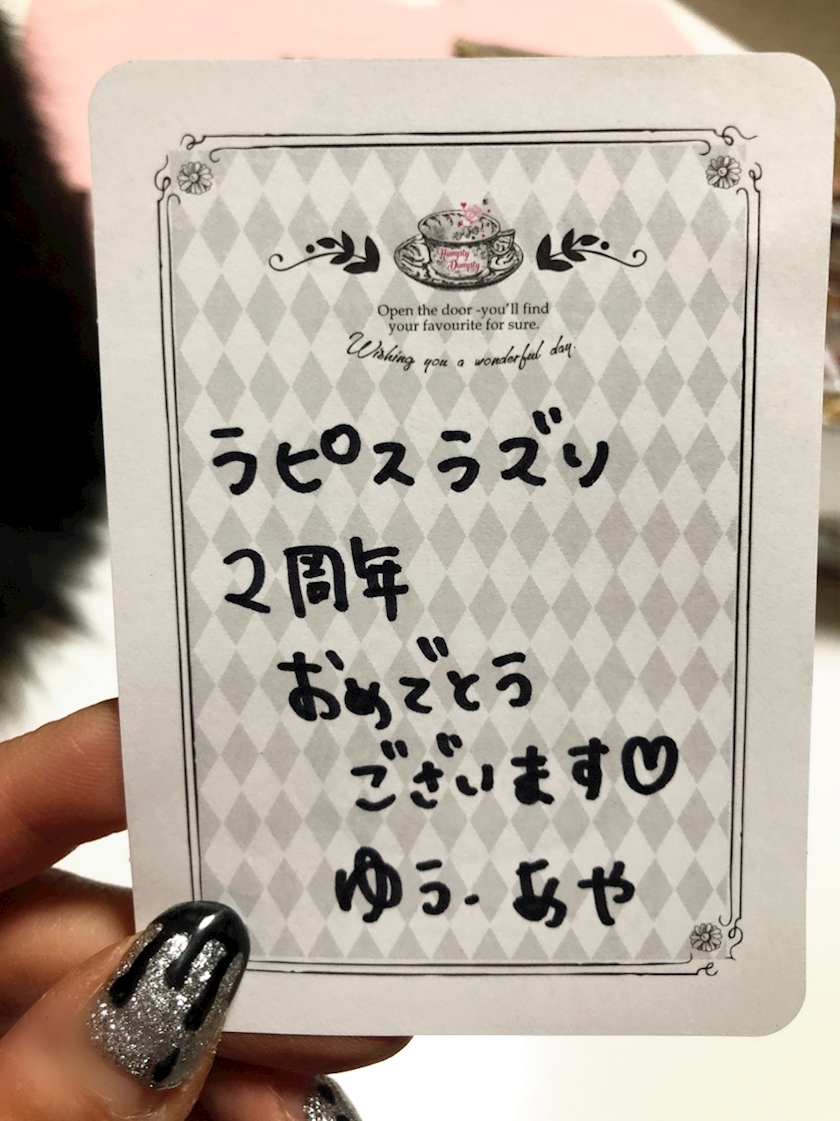 Humpty
Dumpty
Open the door -you'll find
your favourite for sure.
Wishing you a wonderful day.
ラピスラズリ
2周年
おめでとう
ございます♡
ゆう・あや